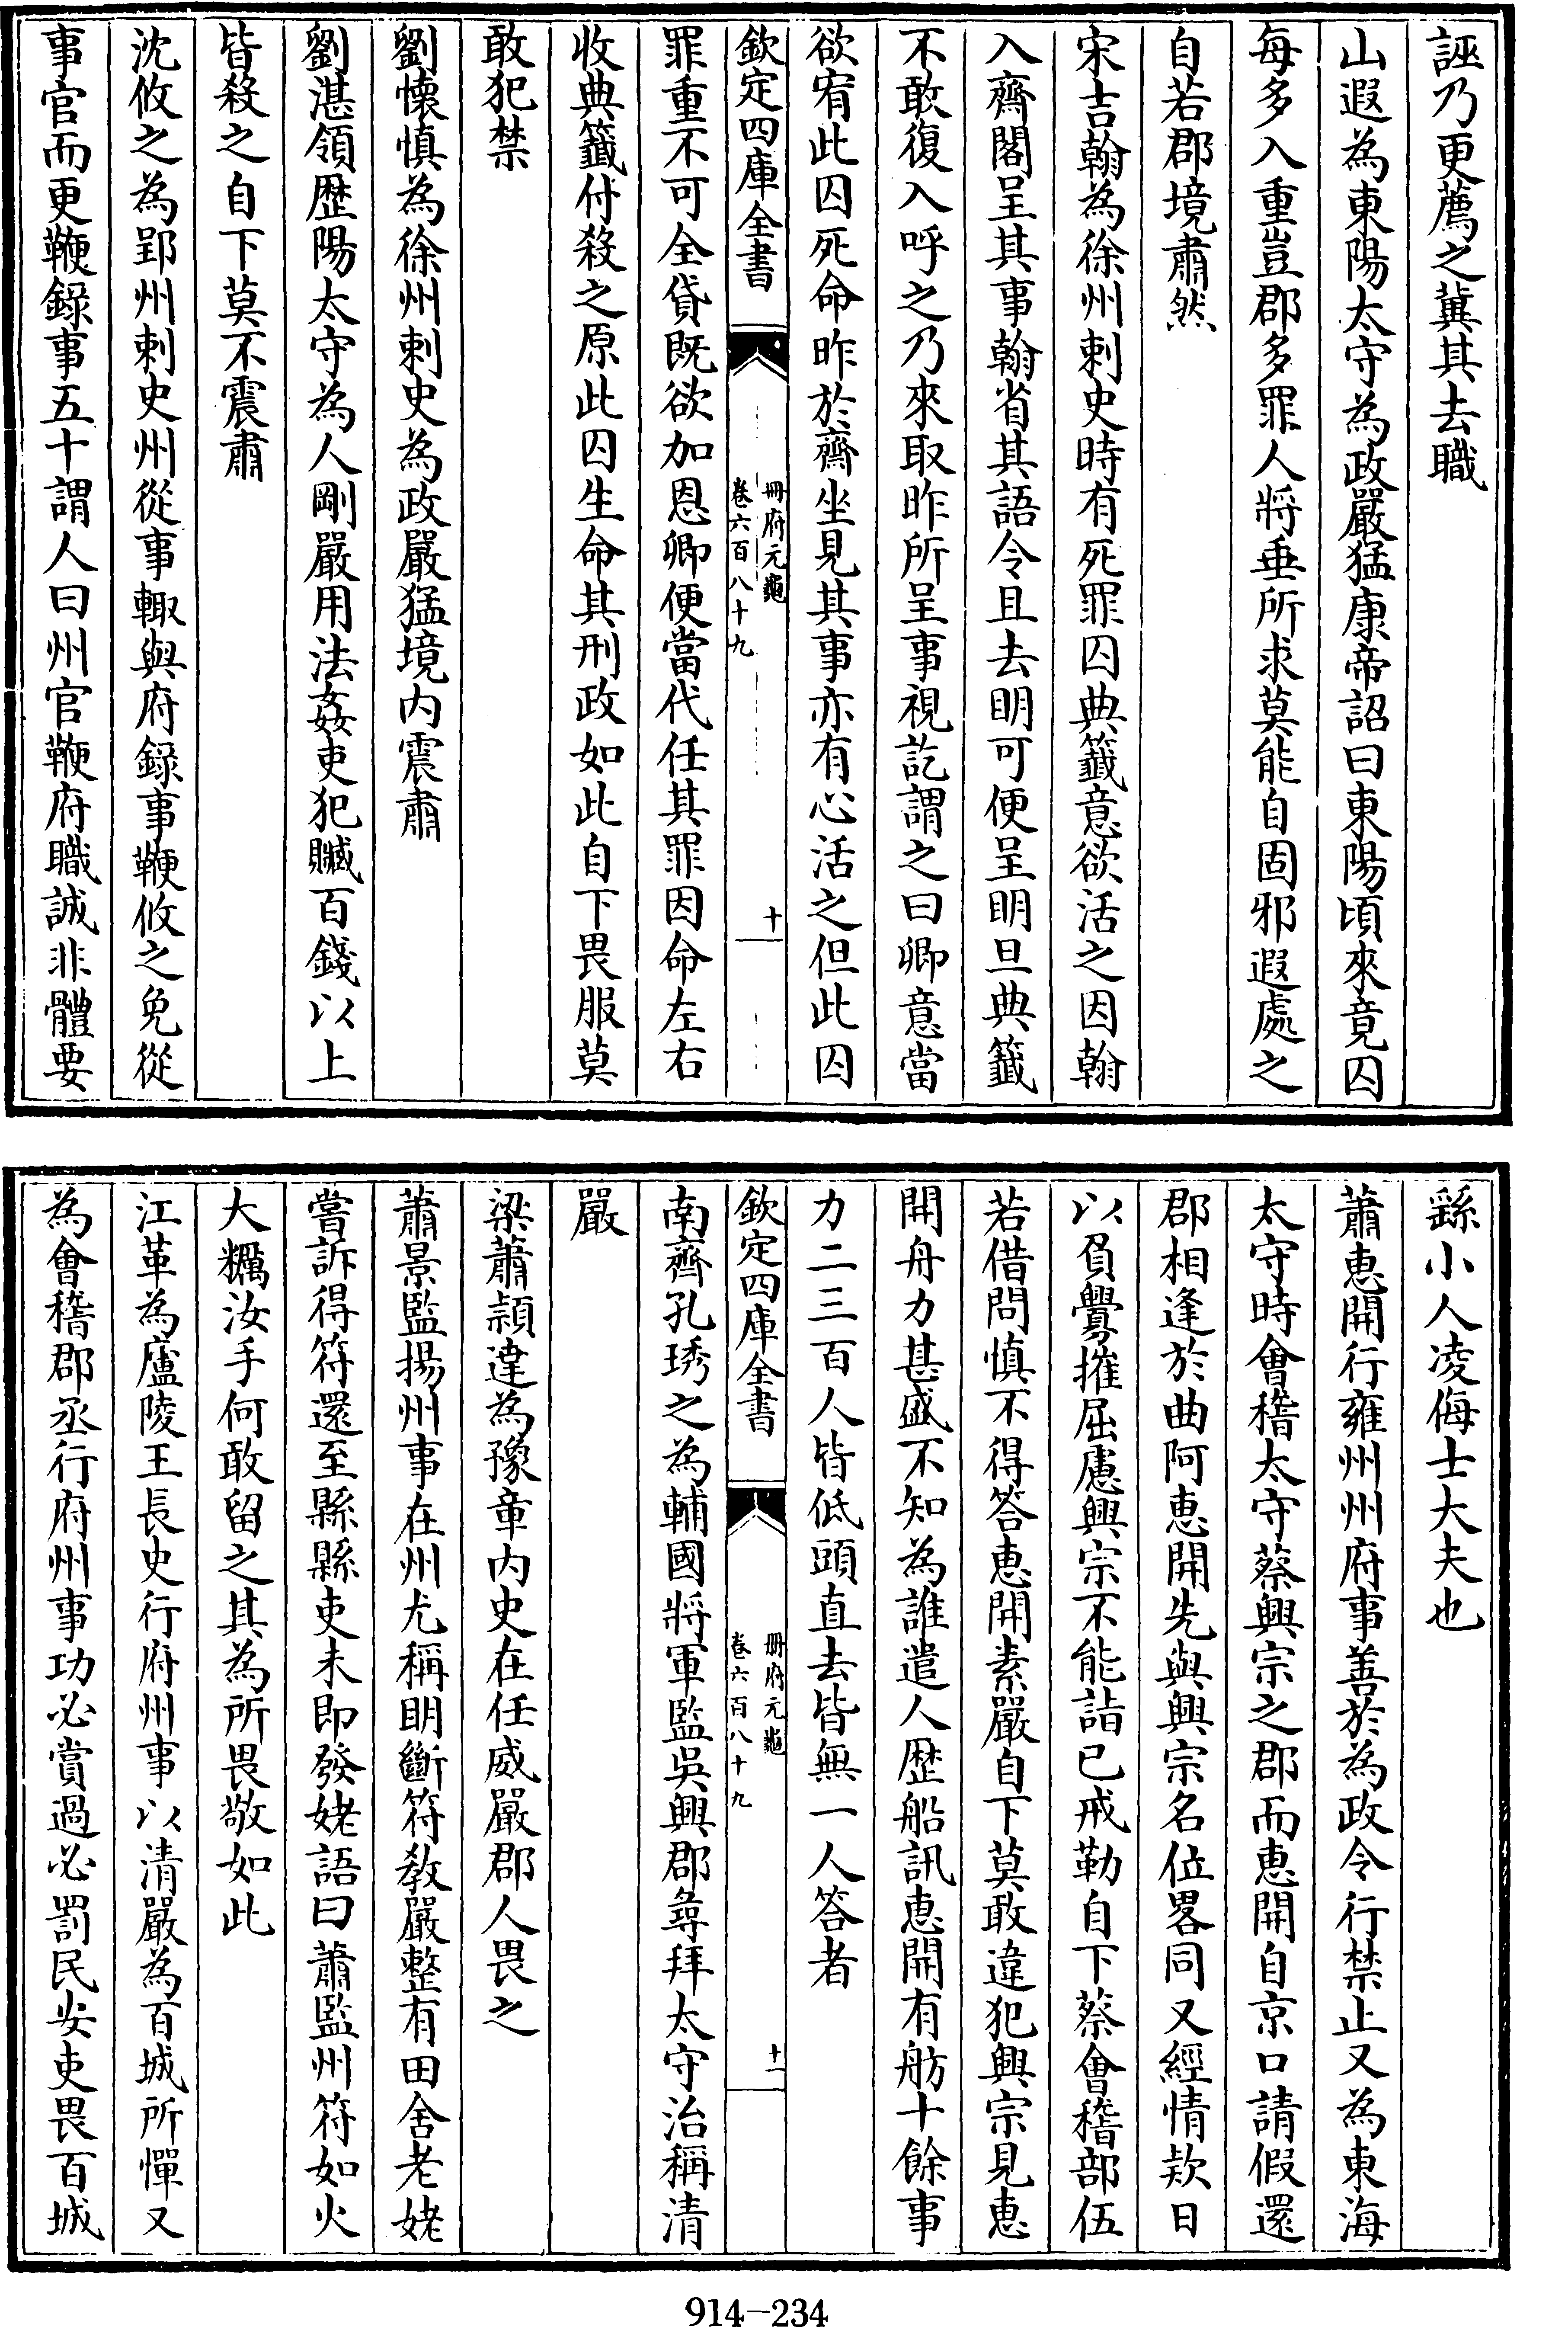 誣乃更薦之冀其去職
山遐為東陽太守為政嚴猛康帝詔曰東陽頃來竟囚
每多入重豈郡多罪人將垂所求莫能自固邪遐處之
自若郡境肅然
宋吉翰為徐州刺史時有死罪囚典籖意欲活之因翰
入齋閣呈其事翰省其語令且去明可便呈明旦典籖
不敢復入呼之乃來取昨所呈事視訖謂之曰卿意當
欲宥此囚死命昨於齋坐見其事亦有心活之但此囚
欽定四庫全書
冊府元龜
卷六百八十九
十
罪重不可全貸既欲加恩卿便當代任其罪因命左右
收典籖付殺之原此囚生命其刑政如此自下畏服莫
敢犯禁
劉懷慎為徐州刺史為政嚴猛境内震肅
劉湛領歴陽太守為人剛嚴用法姦吏犯贓百錢以上
皆殺之自下莫不震肅
沈攸之為郢州刺史州從事輙與府錄事鞭攸之免從
事官而更鞭錄事五十謂人曰州官鞭府職誠非體要
繇小人凌侮士大夫也
蕭惠開行雍州州府事善於為政令行禁止又為東海
太守時會稽太守蔡興宗之郡而惠開自京口請假還
郡相逢於曲阿惠開先與興宗名位畧同又經情欵日
以負釁摧屈慮興宗不能詣已戒勒自下蔡會稽部伍
若借問慎不得答惠開素嚴自下莫敢違犯興宗見惠
開舟力甚盛不知為誰遣人歴船訊惠開有舫十餘事
力二三百人皆低頭直去皆無一人答者
欽定四庫全書
冊府元龜
卷六百八十九
十一
南齊孔琇之為輔國將軍監吳興郡尋拜太守治稱清
嚴
梁蕭頴達為豫章内史在任威嚴郡人畏之
蕭景監揚州事在州尤稱明斷符教嚴整有田舍老姥
嘗訴得符還至縣縣吏未即發姥語曰蕭監州符如火
大爥汝手何敢留之其為所畏敬如此
江革為廬陵王長史行府州事以清嚴為百城所憚又
為會稽郡丞行府州事功必賞過必罰民安吏畏百城
914-234